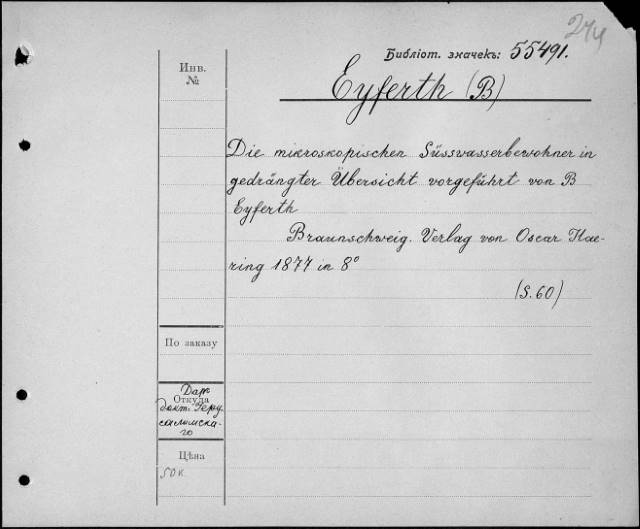 244
Библіот. значекъ: 55491.
Инв.
№
Eyferth (B)
Die mikroskopischen Süssvasserbewohner in
gedrängter Übersicht vorgeführt von B
Eyferth
Braunschweig. Verlag von Oscar Hae-
ring 1877 in 8°
(S. 60)
По заказу
Даръ
Откуда
докт. Iеру-
салимска-
го
Цѣна
50 к